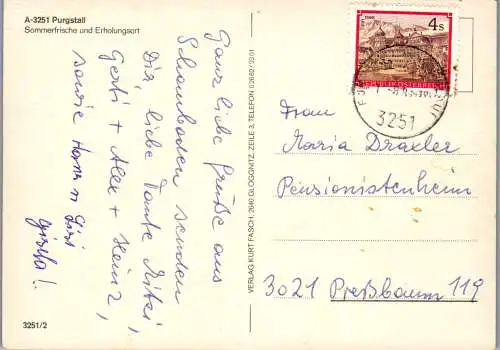 A-3251 Purgstall
Sommerfrische und Erholungsort
Ganz liebe Grüße aus
Schauboden senden
Dir, liebe Tante Mitzi,
Gerti + Alex + Heinz,
sowie Hans n Lisi
Gisela!
3251/2
VERLAG KURT FASCH, 2640 GLOGGNITZ, ZEILE 3, TELEFON 02662/2301
4 S
REPUBLIK ÖSTERREICH
3251
Frau
Maria Draxler
Pensionistenheim
3021 Preßbaum 119